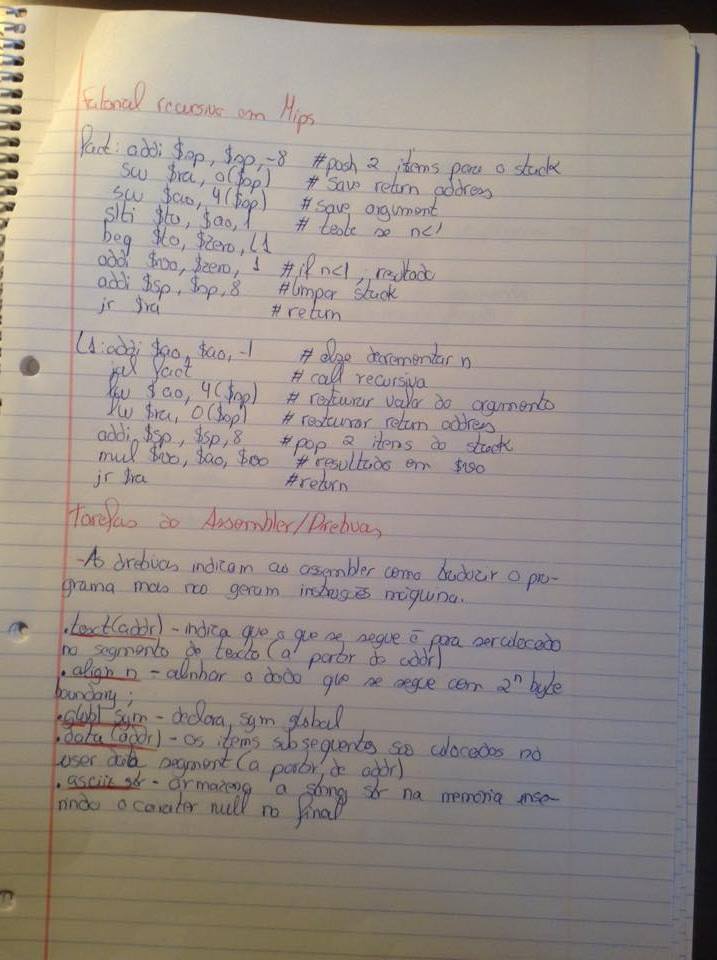 Fatorial recursivo em Mips
Fact: addi $sp, $sp, -8 #push 2 items para o stack
sw $ra, 0($sp) # Save return address
sw $a0, 4($sp) # save argument
slti $t0, $a0, 1 # teste se n<1
beq $t0, $zero, L1
addi $v0, $zero, 1 # if n<1, resultado
addi $sp, $sp, 8 #limpar stack
jr $ra # return
L1: addi $a0, $a0, -1 # else decrementar n
jal fact # call recursiva
lw $a0, 4($sp) # restaurar valor do argumento
lw $ra, 0($sp) # restaurar return address
addi $sp, $sp, 8 #pop 2 itens do stack
mul $v0, $a0, $v0 # resultado em $v0
jr $ra #return
Tarefas do Assembler/Diretivas
-As diretivas indicam ao assembler como traduzir o pro-
grama mas não geram instruções máquina.
.text(addr) - indica que o que se segue é para ser colocado
no segmento de texto (a partir do addr)
.align n - alinhar o dado que se segue com 2^n byte
boundary;
.globl sym - declara sym global
.data(addr) - os items subsequentes são colocados no
user data segment (a partir de addr)
.asciiz str - armazena a string str na memória inse-
rindo o carater null no final